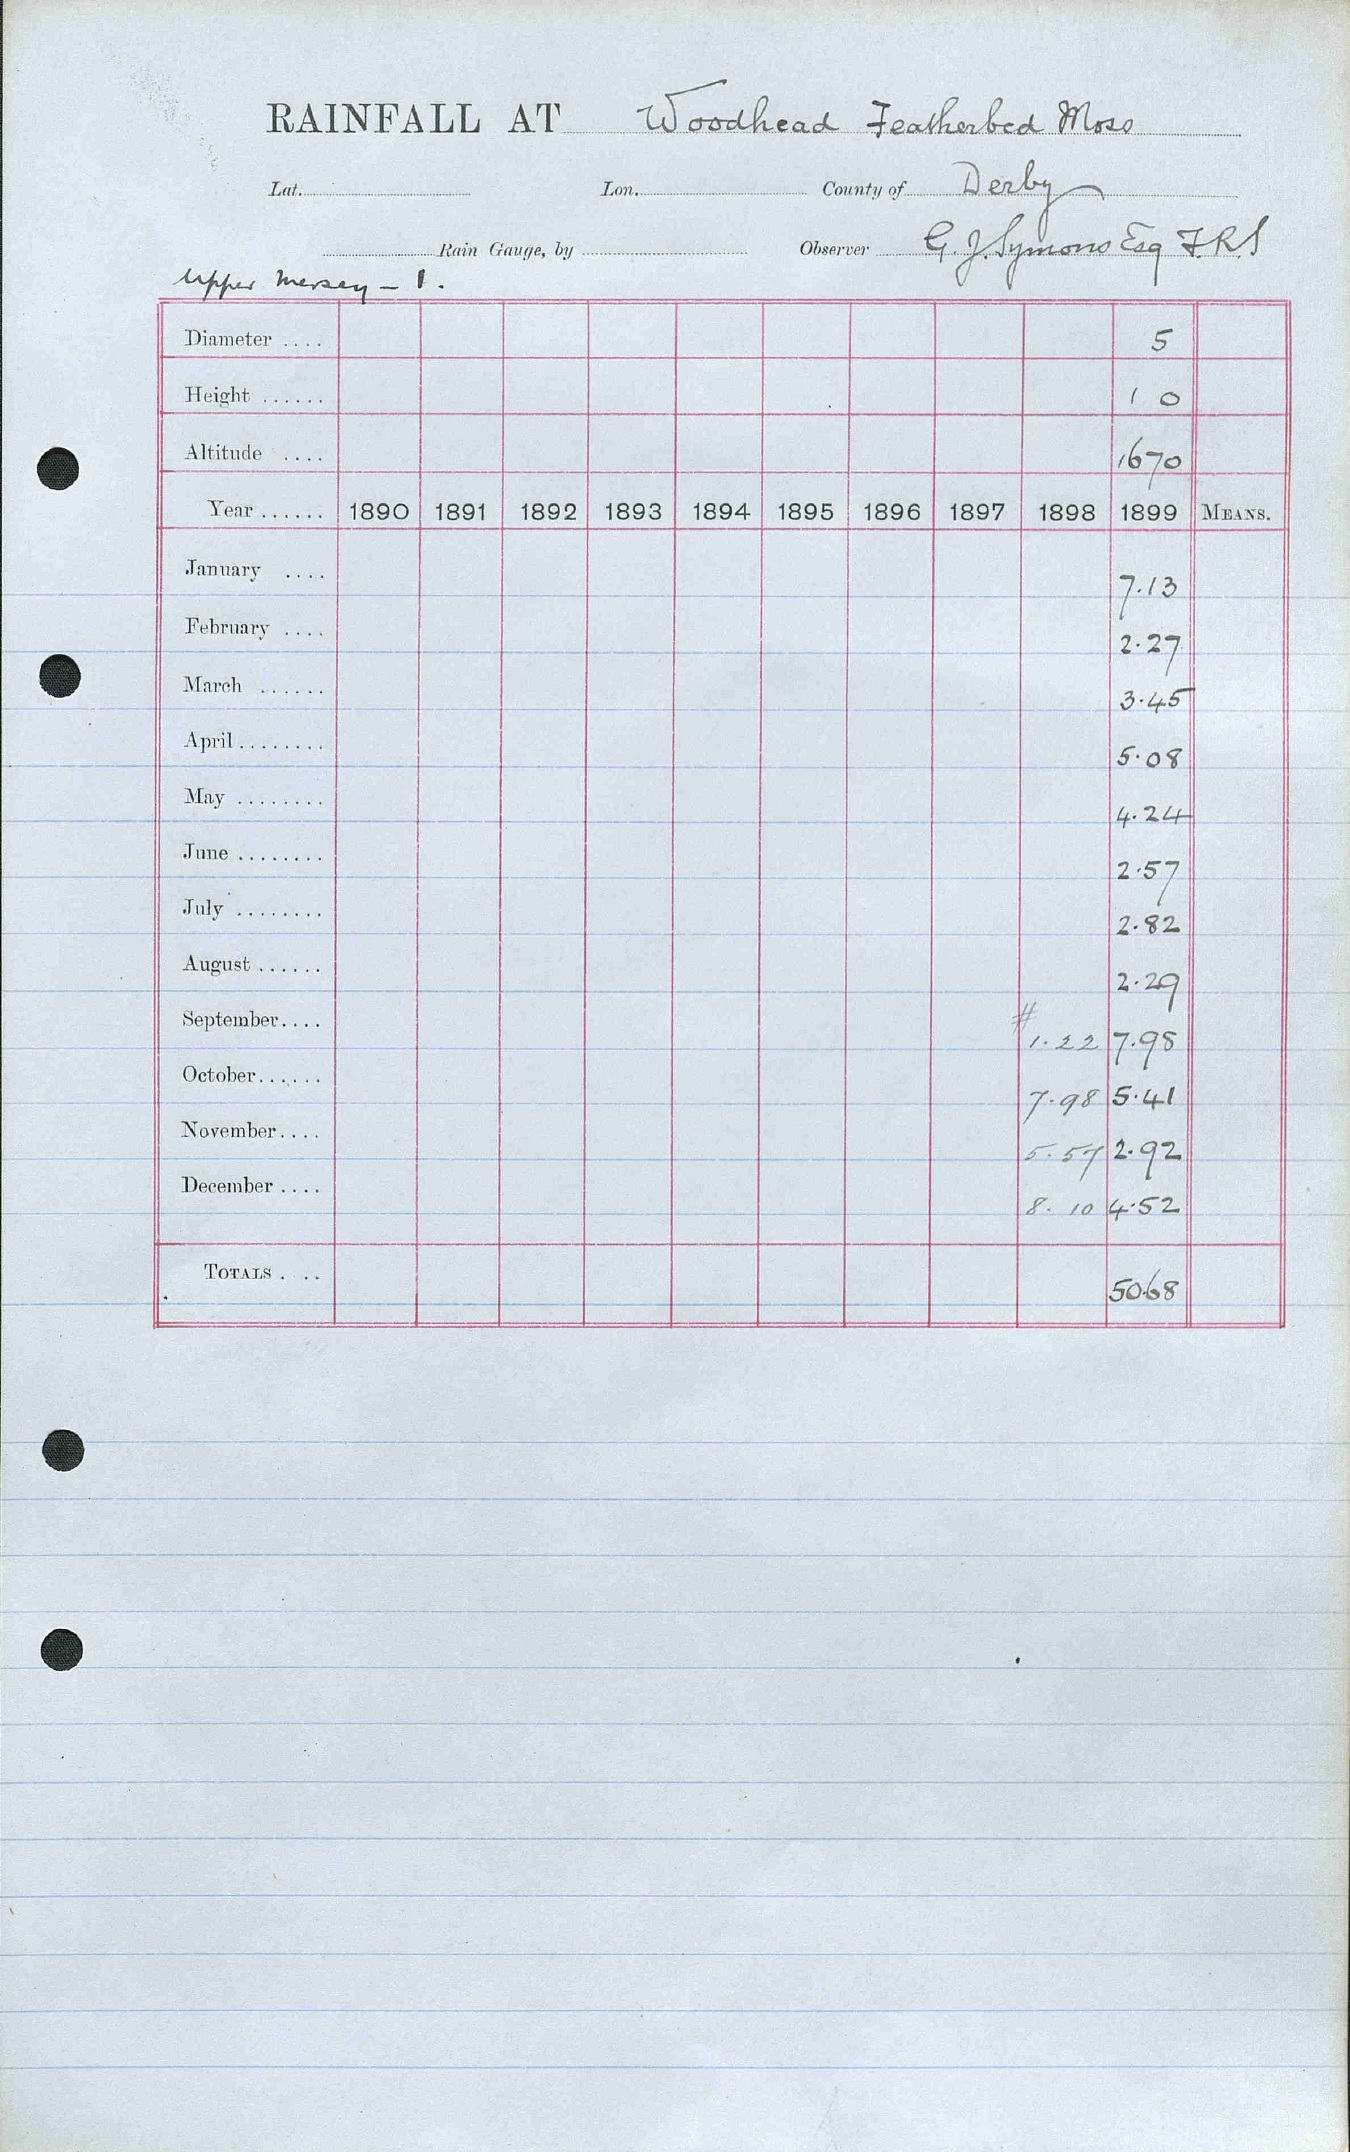 RAINFALL AT Woodhead Featherbed Moss
Lat. Lon. County of Derby
Rain Gauge, by Observer G. J. Symons Esq F.R.S
Upper Mersey - 1.
Diameter .... 5
Height ...... 1 0
Altitude .... 1670
Year ...... 1890 1891 1892 1893 1894 1895 1896 1897 1898 1899 MEANS.
January .... 7.13
February .... 2.27
March ...... 3.45
April ........ 5.08
May ........ 4.24
June ........ 2.57
July ........ 2.82
August ...... 2.29
September.... # 1.22 7.98
October...... 7.98 5.41
November.... 5.57 2.92
December .... 8.10 4.52
TOTALS . .. 50.68